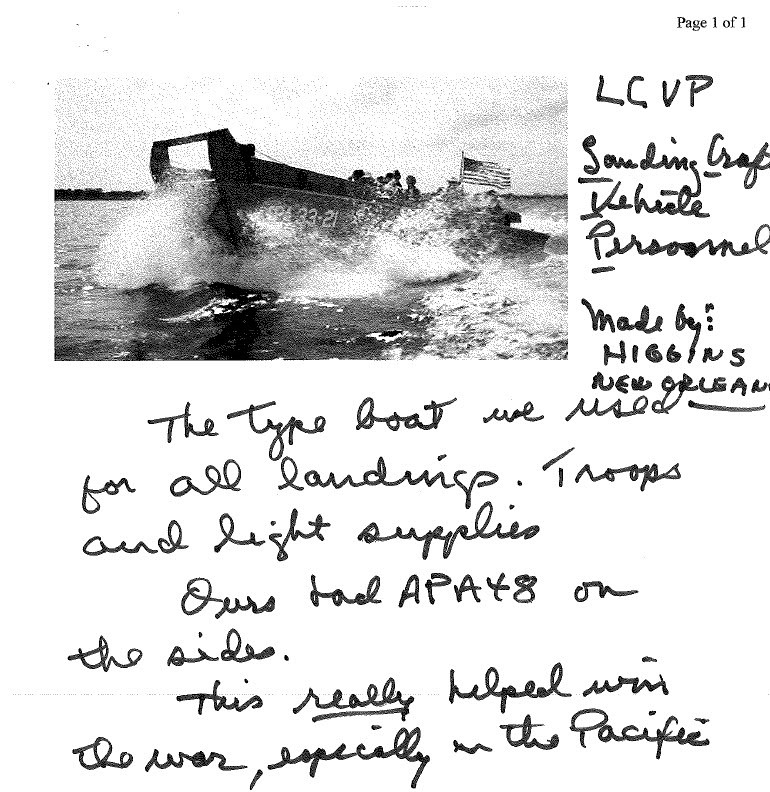 Page 1 of 1
LCVP
Landing Craf
Vehicle
Personnel
Made by:
HIGGINS
NEW ORLEAN
The type boat we used
for all landings. Troops
and light supplies
Ours had APA48 on
the sides.
This really helped win
the war, espcially in the Pacific